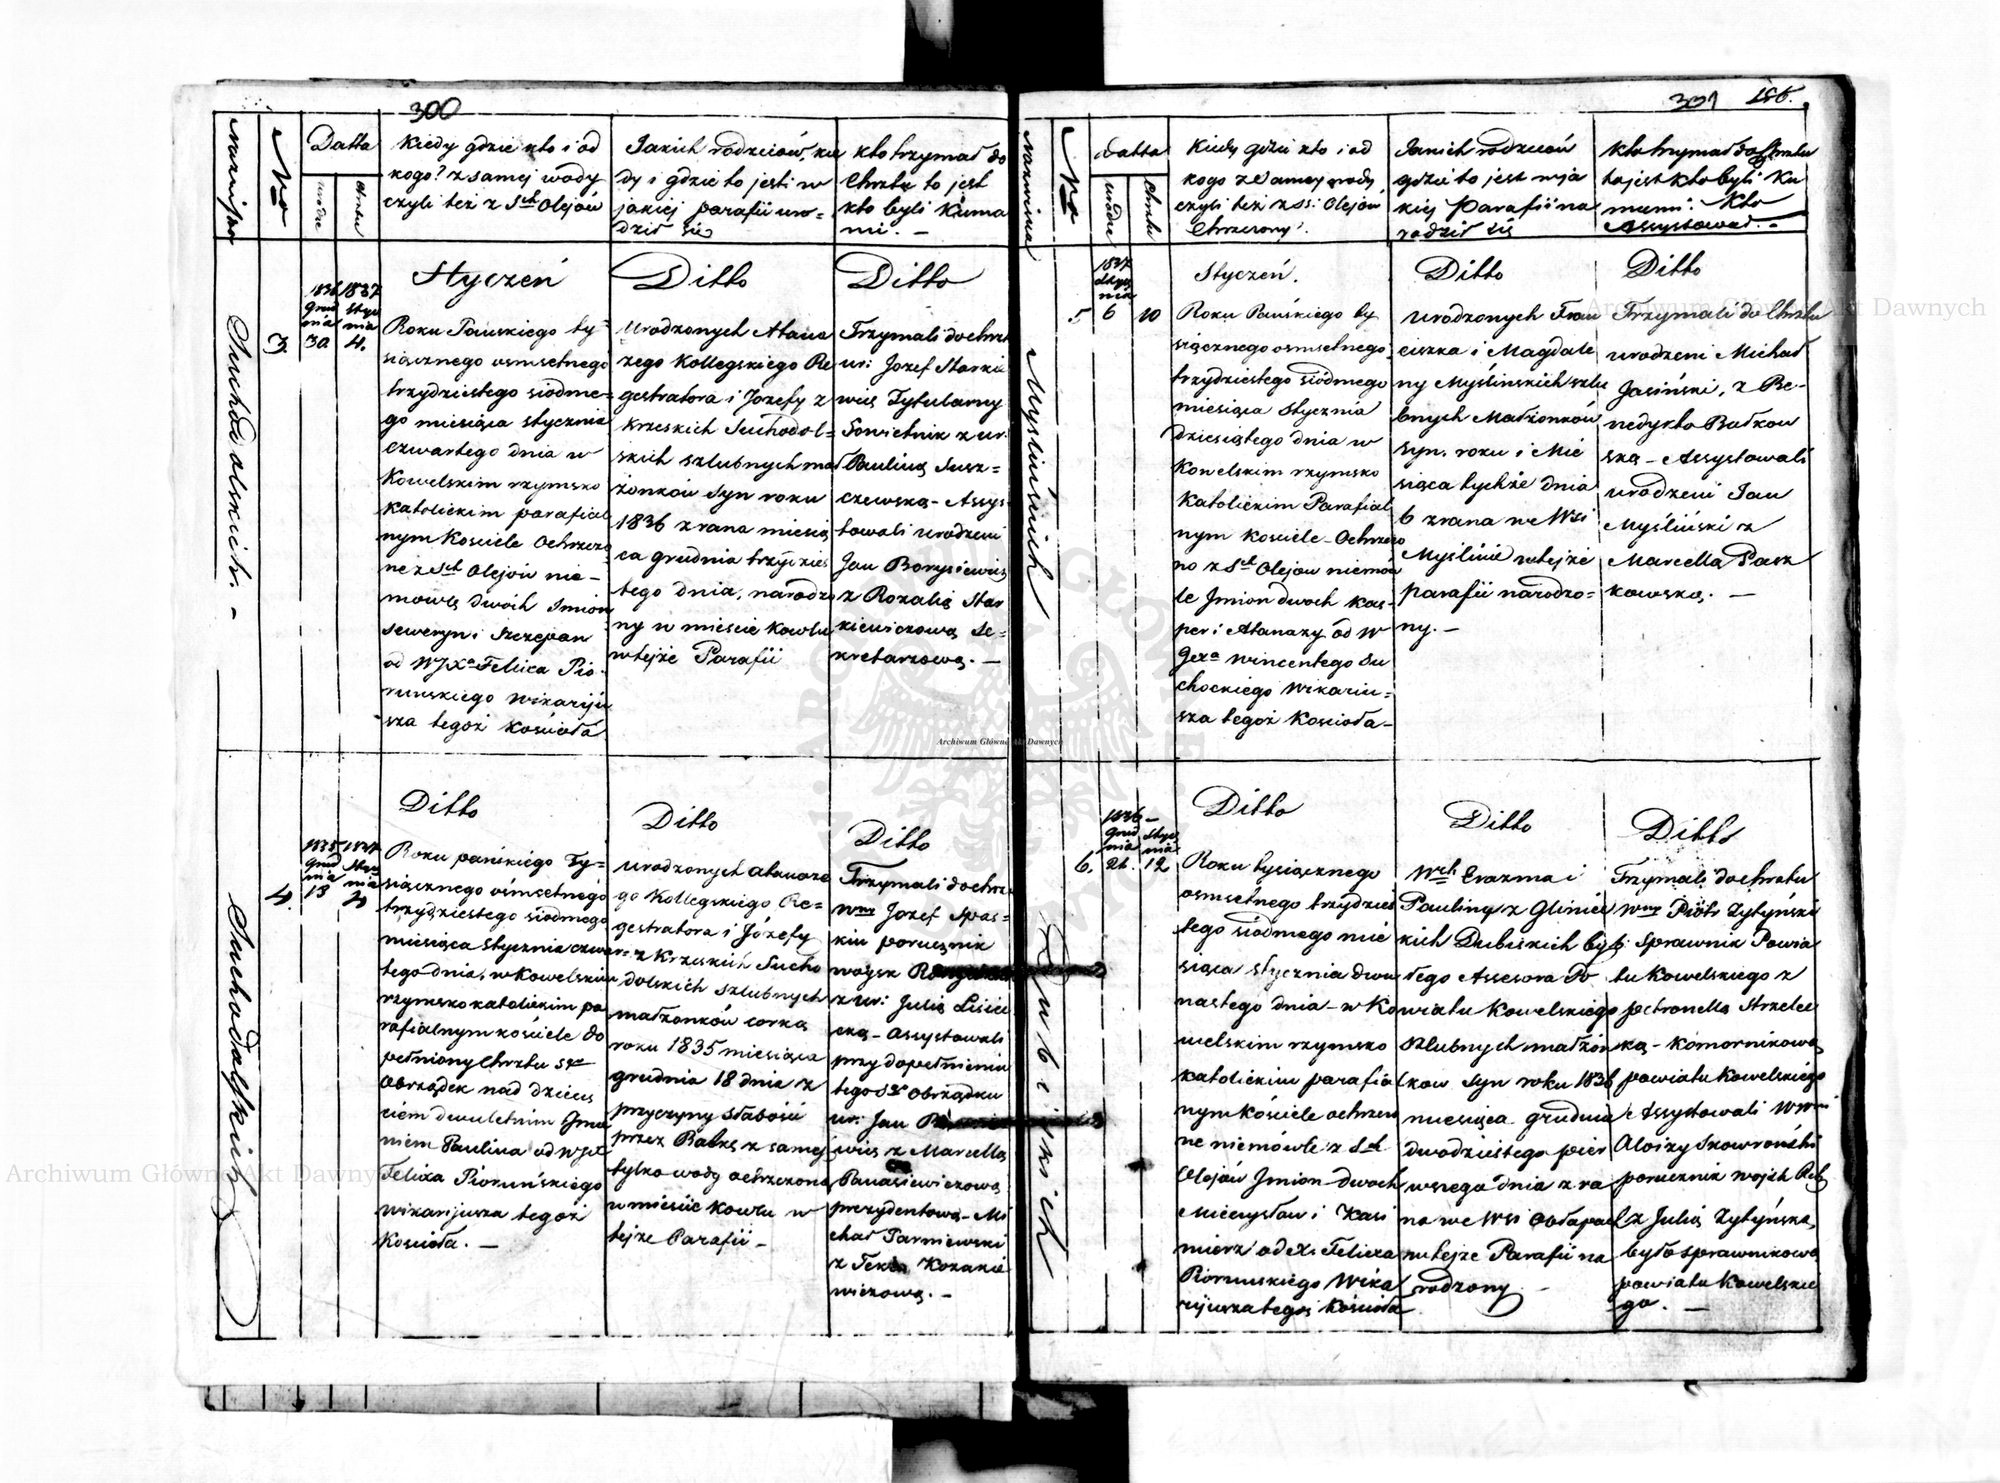 300
Nazwisko
No
Datta
urodze
chrztu
Kiedy gdzie kto i od
kogo? z samej wody
czyli też z Sch Olejów
Jakich rodziców, kie
dy i gdzie to jest w
jakiej parafii uro=
dził się
kto trzymał do
Chrztu to jest
kto byli Kuma
mi. —
Suchodolskich. —
3.
1836
Grud
nia
30
1837
Stycz
nia
4.
Styczeń
Roku Pańskiego ty=
siącznego osmsetnego
trzydziestego siodme=
go miesiąca stycznia
czwartego dnia w
Kowelskim rzymsko
katolickim parafial
nym Kościele Ochrzczo
ne z Sch Olejów nie=
mowlę dwóch Imion
Seweryn i Szczepan
od WJXa Felixa Pio=
runskiego Wikaryu
sza tegoż kościoła
Ditto
Urodzonych Atana
zego Kollegskiego Re
gestratora i Jozefy z
Krzeskich Suchodol=
skich szlubnych mał
żonków Syn roku
1836 z rana miesią
ca grudnia trzydzies
tego dnia, narodzo
ny w mieście Kowlu
w tejże Parafii
Ditto
Trzymali do chrztu
ur: Jozef Starkie
wicz Tytularny
Sowietnik z ur.
Pauliną Susz=
czewską — Assys
towali urodzeni
Jan Borysiewicz
z Rozalią Star
kiewiczową Se=
kretarzową. —
Suchodolskich
4.
1835
Grud
nia
18
1837
Stycz
nia
4
Ditto
Roku pańskiego Ty=
siącznego ośmsetnego
trzydziestego siodmego
miesiąca stycznia czwar=
tego dnia, w Kowelskim
rzymsko katolickim pa
rafialnym kościele do
pełniony Chrztu Sgo
Obrządek nad dziecię
ciem dwuletnim Imie
niem Paulina od WJXa
Felixa Pioruńskiego
wikaryusza tegoż
Kościoła. —
Ditto
urodzonych Atanaze
go Kollegskiego Re=
gestratora i Józefy
z Krzeskich Sucho
dolskich szlubnych
małżonków corką
roku 1835 miesiąca
grudnia 18 dnia z
przyczyny słabości
przez Babkę z samej
tylko wody ochrzczona
w mieście Kowlu w
tejże Parafii —
Ditto
Trzymali do chrztu
Wny Jozef Spas=
kiu porucznik
woysk
z ur: Julią Lisic
cką — Assystowali
przy dopełnieniu
tego Sgo Obrządku
ur: Jan
wicz z Marcellą
Panasiewiczową
prezydentową — Mi
chał Parniewski
z Teklą Kozakie
wiczową. —
301 156.
Nazwiska
No
datta
urodze
chrztu
Kiedy gdzie kto i od
kogo z samej wody,
czyli też z SS: Olejów
Chrzczony.
Jakich rodziców
gdzie to jest w ja
kiej Parafii na
rodził się
Kto trzymał do Chrztu
to jest kto byli Ku
mami. Kto
Assystował. —
Myslińskich
5
1837
Stycz
nia
6
10
Styczeń.
Roku Pańskiego ty
siącznego osmsetnego
trzydziestego siódmego
miesiąca Stycznia
Dziesiątego dnia w
Kowelskim rzymsko
Katolickim Parafial
nym Kościele — Ochrzczo
no z Sch Olejow niemów
le Imion dwoch Kas=
per i Atanazy od W
Jexa Wincentego Su
chockiego Wikariu=
sza tegoż Kościoła —
Ditto
Urodzonych Fran
ciszka i Magdale
ny Myślinskich szlu
bnych Małżonków
syn. roku i Mie
siąca tychże dnia
6 z rana we Wsi
Myślinie w tejże
parafii narodzo=
ny. —
Ditto
Trzymali do Chrztu
urodzeni Michał
Jasiński, z Be=
nedykto Bałkow
ską — Assystowali
urodzeni Jan
Myśliński z
Marcellą Pasz
kowską. —
Dubiskich
6.
1836
Grud
nia
21.
—
Stycz
nia
12
Ditto
Roku tysiącznego
osmsetnego trzydzies
tego siódmego mie
siąca stycznia dwu
nastego dnia — w Ko
welskim rzymsko
katolickim parafial
nym kościele ochrzczo
ne niemówle z Sch
Olejów Imion dwoch
Mieczysław i Kazi
mierz od X. Felixa
Piorunskiego Wika
ryusza tegoż Kościoła
Ditto
Wch Erazma i
Pauliny z Gliniec
kich Dubiskich były
łego Assesora Po
wiatu Kowelskiego
Szlubnych małżon
kow Syn roku 1836
miesiąca grudnia
dwudziestego pier
wszego dnia z ra
na we Wsi Obłapach
w tejże Parafii na
rodzony —
Ditto
Trzymali do chrztu
Wny Piotr Zytyński
Sprawnik Powia
tu Kowelskiego z
petronellą Strzelec
ką — Komornikową
powiatu Kowelskiego
Assystowali Wni
Aloizy Skowroński
porucznik wojsk
z Julią Zytyńską,
było sprawnikową
powiatu Kowelskie
go. —
Archiwum Główne Akt Dawnych
Archiwum Główne Akt Dawnych
Archiwum Główne Akt Dawnych